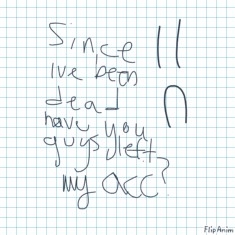 Since
ive been
dead
have you
guys left
my acc?
FlipAnim